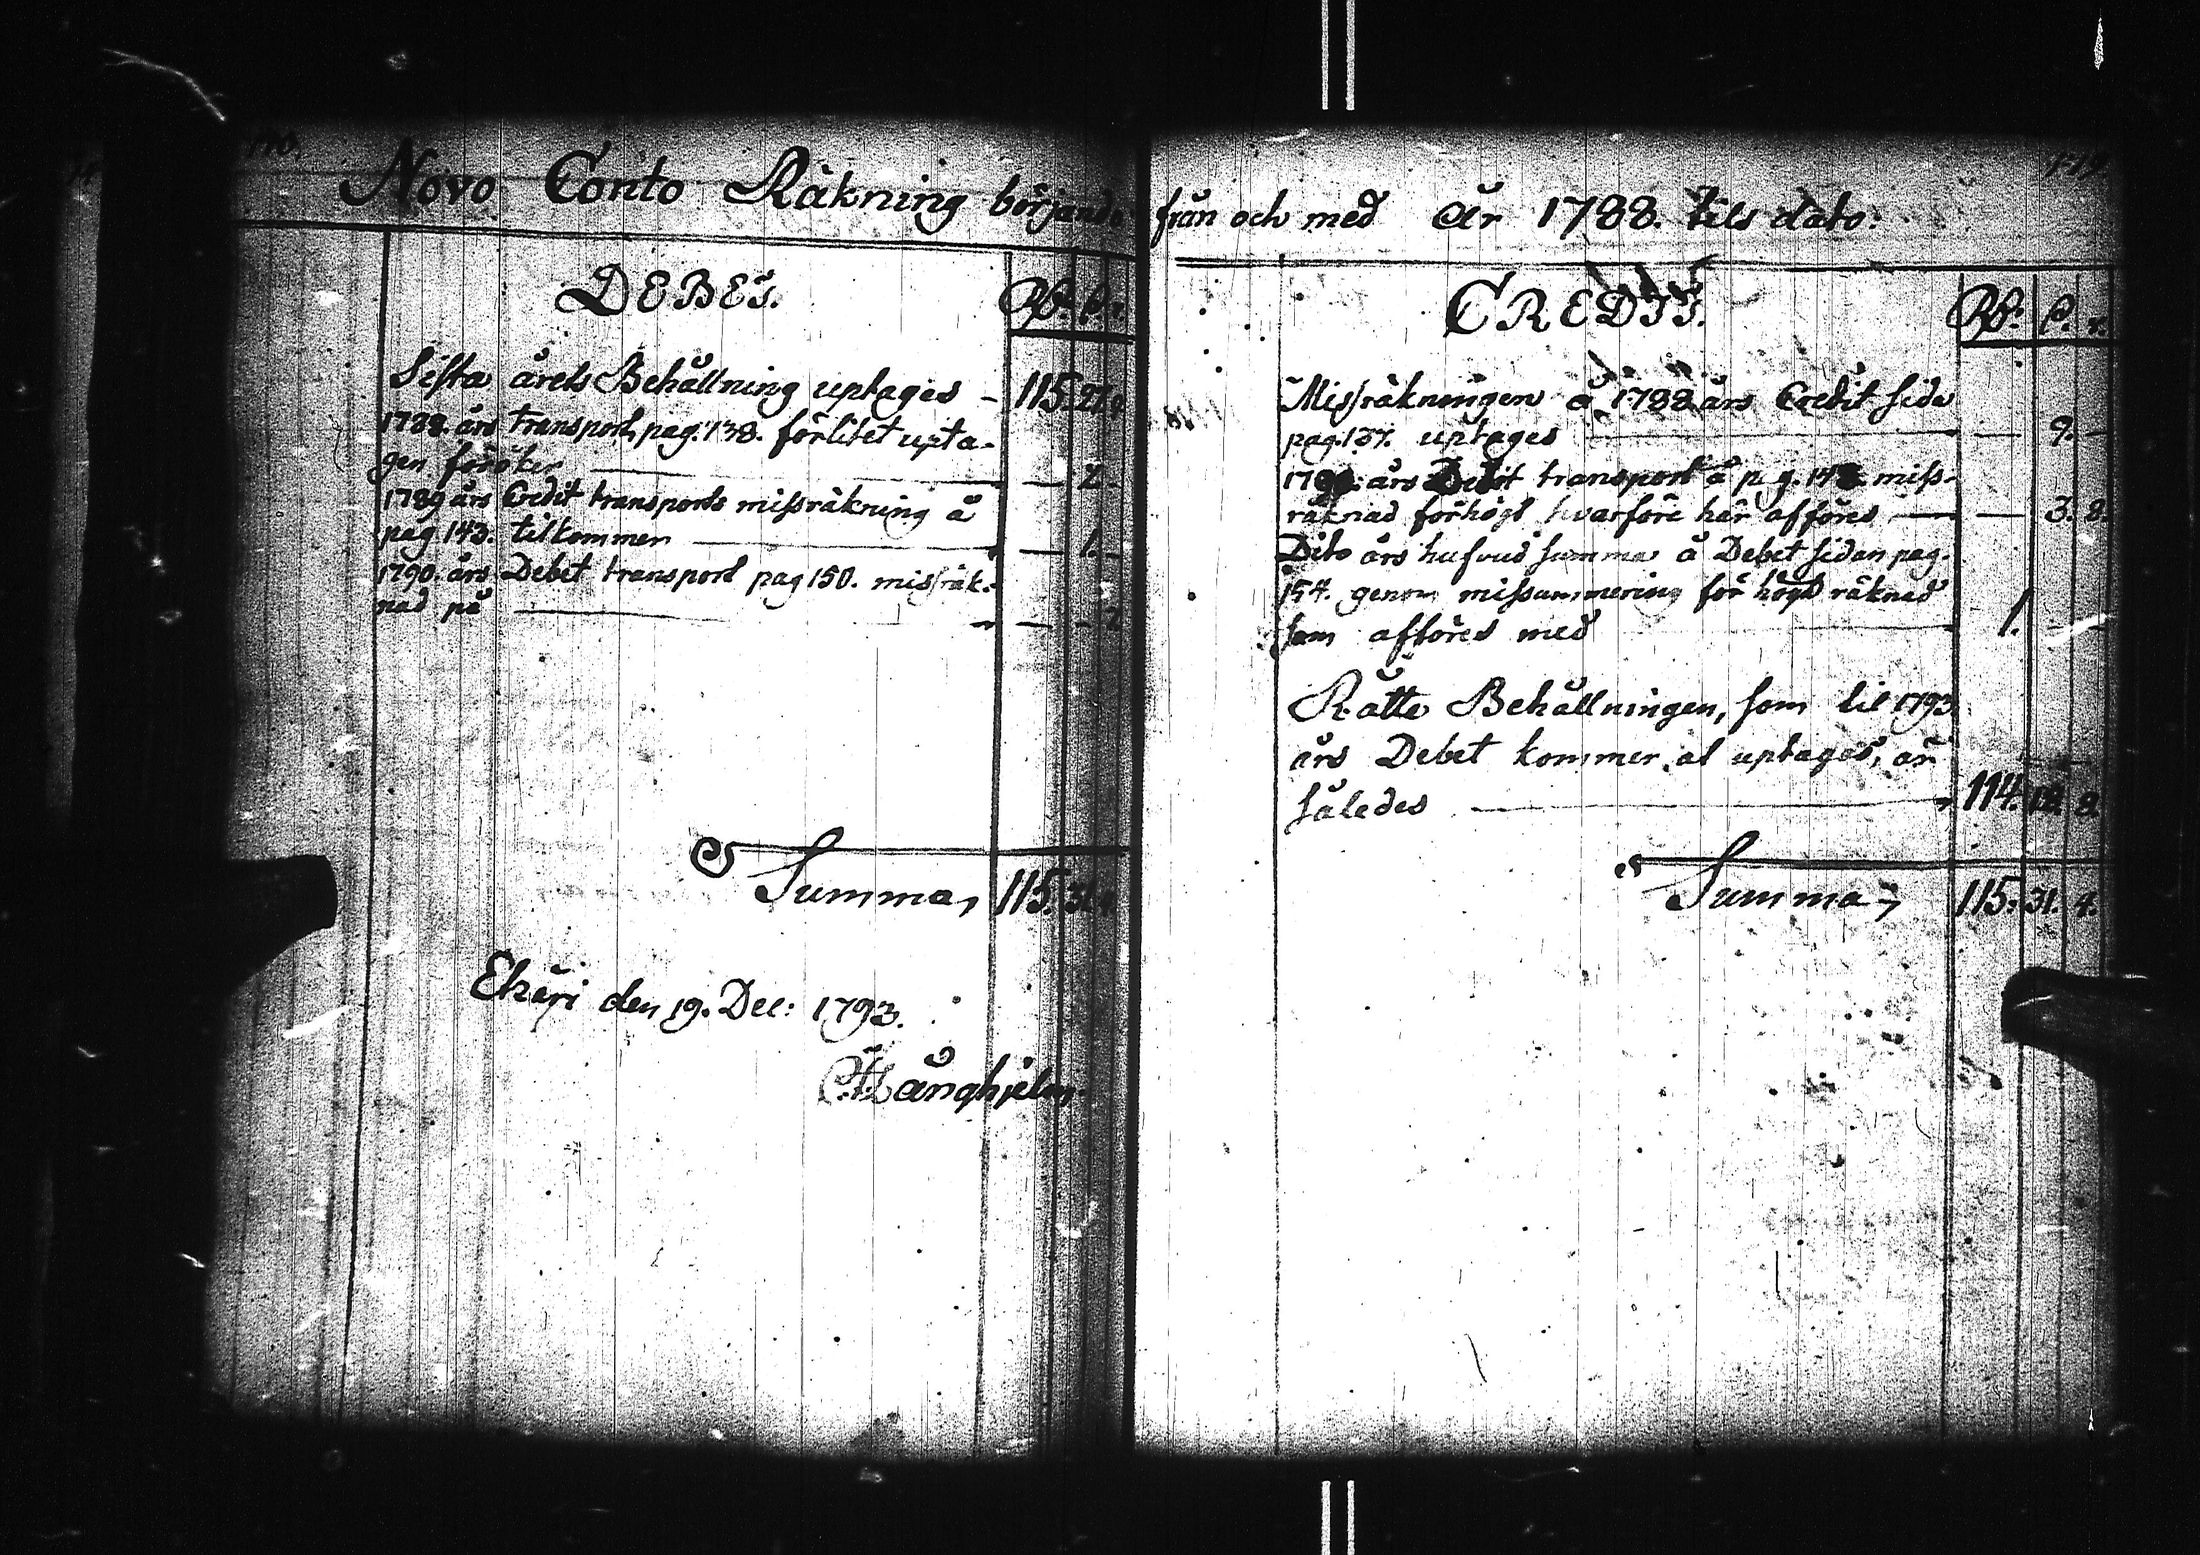 Novo Conto Räkning börjande
DEBES.
Rd. s. r.
Sista årets Behållning uptages 115. 27.
1788. års transport, pag: 138. förlitet upta-
gen förökes 2.
1789 års Credit transports missräkning å
pag 143. tilkommer 1.
1790. års Debet transport pag 150. missräk-
nad på 2
Summa, 115. 31.
Ekeri den 19. Dec: 1793.
Långhjelm
från och med År 1788. tils dato:
CREDIT.
Rd. s. r.
Missräkningen å 1788 års Credit sida
pag: 137. uptages 9.
års Debit transport å pag. missräknad
räknad förhögt hvarföre här afföres 3. 8.
Dito års hufvud summa å Debet sidan pag.
154. genom missummering för högt räknad
som afföres med 1.
Rätte Behållningen, som til 1793
års Debet kommer at uptages, är
således 114. 18. 8.
Summa 115. 31. 4.